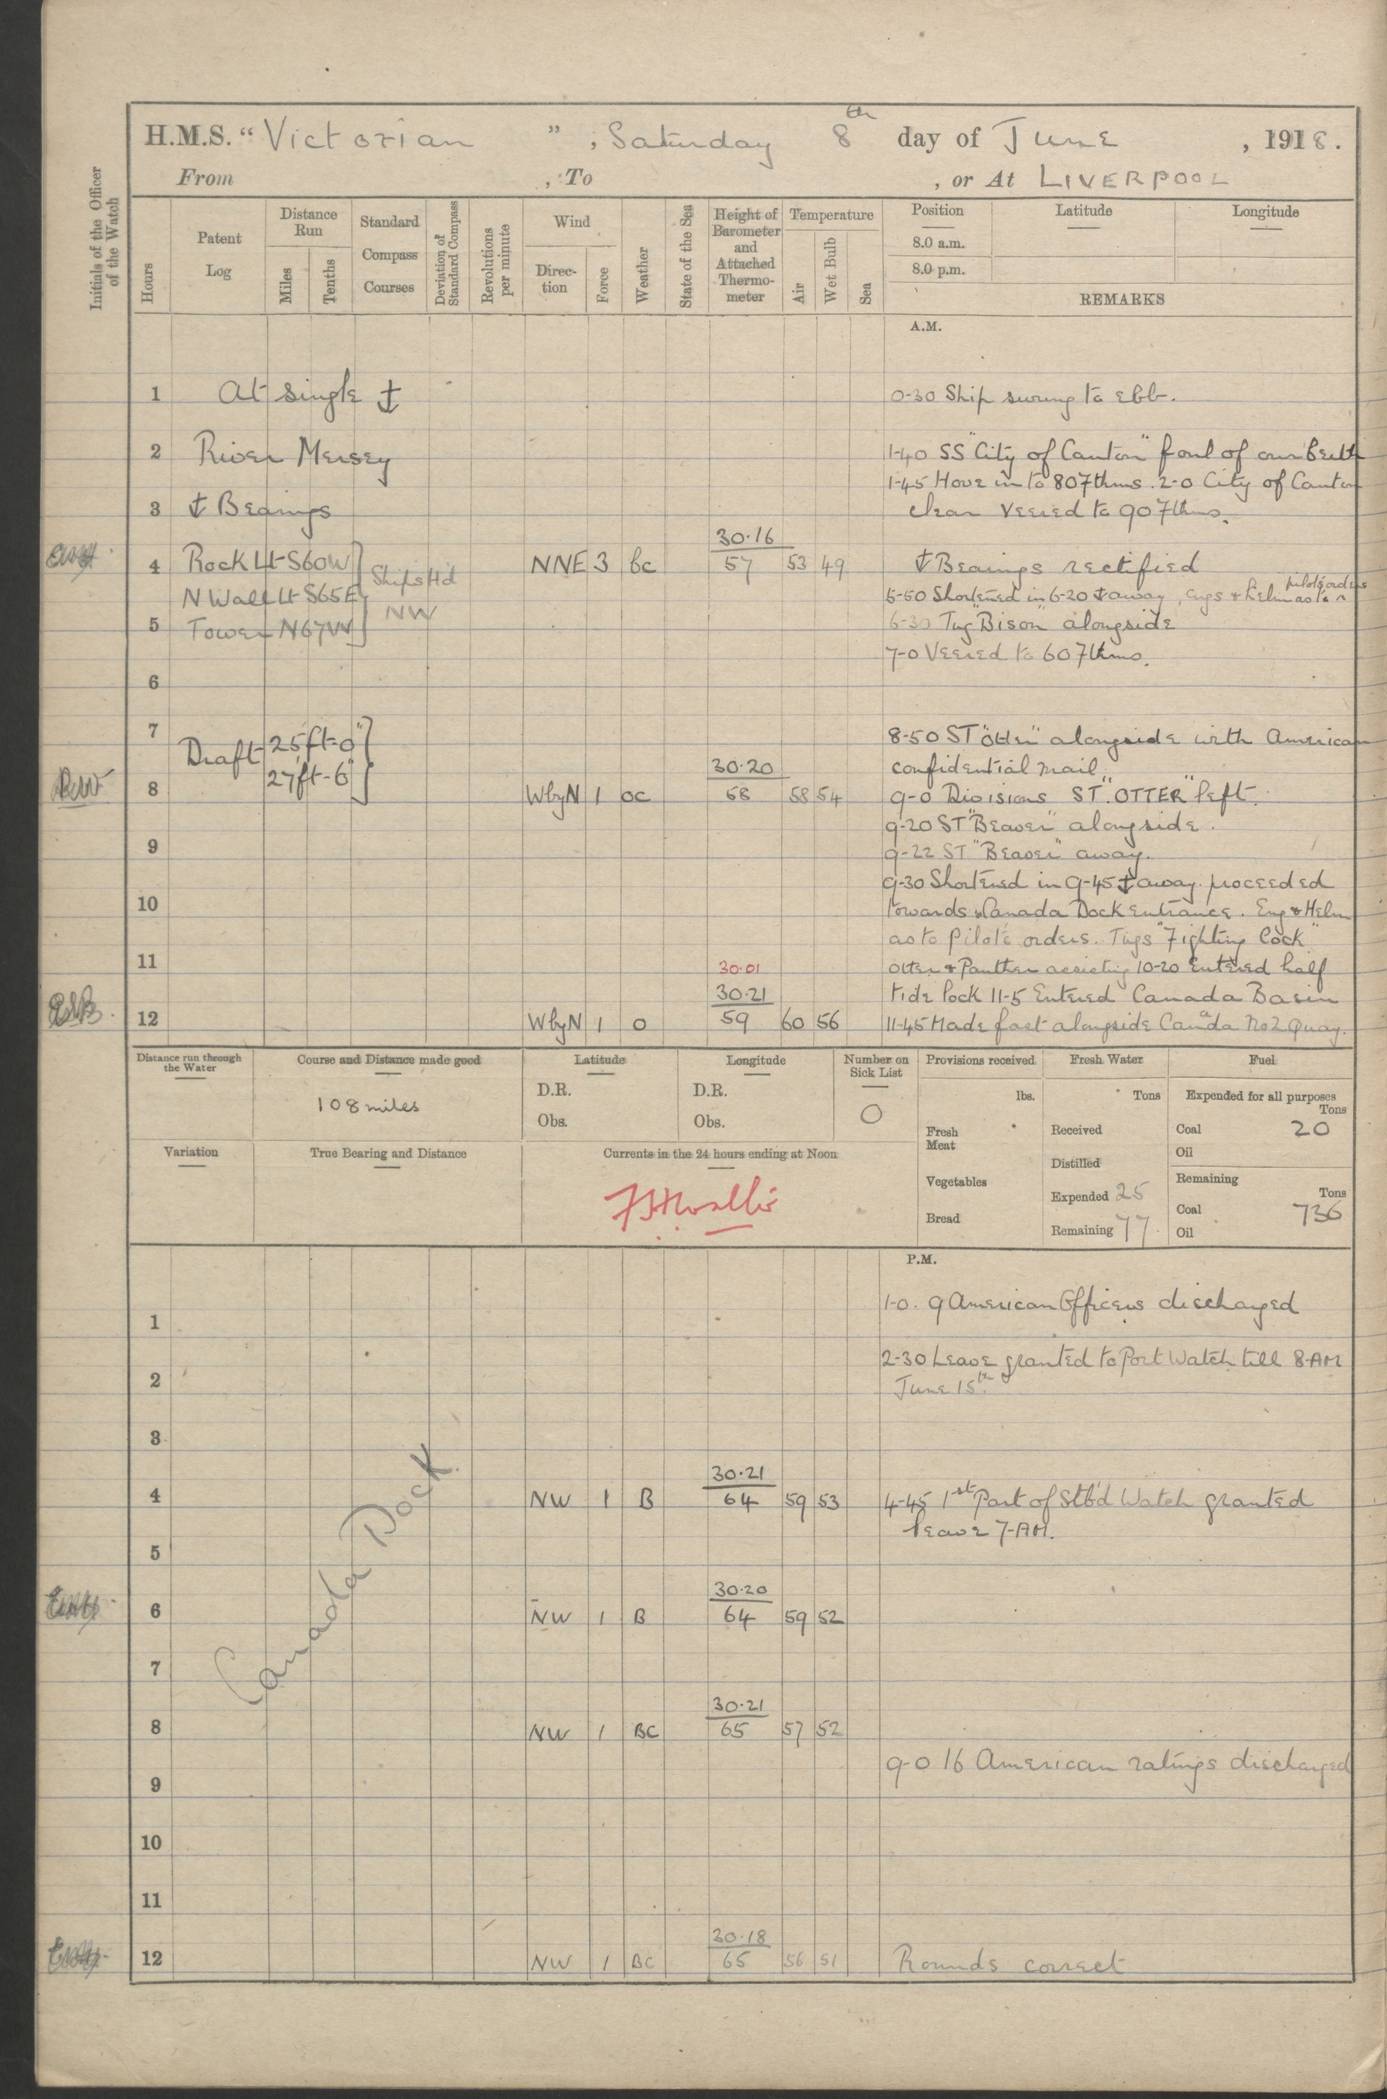 H.M.S. "Victorian", Saturday 8th day of June, 1918.
From , To , or At LIVERPOOL
Initials of the Officer of the Watch
Hours
Patent Log
Distance Run
Miles
Tenths
Standard Compass Courses
Deviation of Standard Compass
Revolutions per minute
Wind
Direction
Force
Weather
State of the Sea
Height of Barometer and Attached Thermometer
Temperature
Air
Wet Bulb
Sea
Position Latitude Longitude
8.0 a.m.
8.0 p.m.
REMARKS
A.M.
1 At single ⚓ 0-30 Ship swung to ebb.
2 River Mersey 1-40 SS "City of Canton" foul of our berth
1-45 Hove in to 80 7thms. 2-0 City of Canton
3 ⚓ Bearings clear Veered to 90 7thms.
30.16
4 Rock Lt S60W Ships Hd NNE 3 bc 57 53 49 ⚓ Bearings rectified
N Wall Lt S65E NW 5-50 Shortened in 6-20 ⚓ away, engs & helm as to pilots orders
5 Tower N67W 6-30 Tug "Bison" alongside
7-0 Veered to 60 7thms.
6
7 Draft 25ft-0" 8-50 ST "Otter" alongside with American
27ft-6" 30.20 confidential mail
8 WbyN 1 oc 58 58 54 9-0 Divisions ST. "OTTER" left.
9-20 ST "Beaver" alongside.
9 9-22 ST "Beaver" away.
9-30 Shortened in 9-45 ⚓ away. proceeded
10 towards Canada Dock entrance. Eng & Helm
as to Pilots orders. Tugs "Fighting Cock"
11 30.01 Otter & Panther assisting 10-20 Entered half
30.21 tide lock 11-5 Entered Canada Basin
12 WbyN 1 o 59 60 56 11-45 Made fast alongside Canada No2 Quay.
Distance run through the Water
Course and Distance made good
108 miles
Latitude
D.R.
Obs.
Longitude
D.R.
Obs.
Number on Sick List
0
Provisions received
lbs.
Fresh Meat
Vegetables
Bread
Fresh Water
Tons
Received
Distilled
Expended 25
Remaining 77
Fuel
Expended for all purposes
Tons
Coal 20
Oil
Remaining
Tons
Coal 736
Oil
Variation
True Bearing and Distance
Currents in the 24 hours ending at Noon
P.M.
1-0. 9 American Officers discharged
1
2-30 Leave granted to Port Watch till 8-AM
2 June 15th
3
Canada Dock
30.21
4 NW 1 B 64 59 53 4-45 1st Part of Stb'd Watch granted
leave 7-AM.
5
30.20
6 NW 1 B 64 59 52
7
30.21
8 NW 1 BC 65 57 52
9-0 16 American ratings discharged
9
10
11
30.18
12 NW 1 BC 65 56 51 Rounds correct